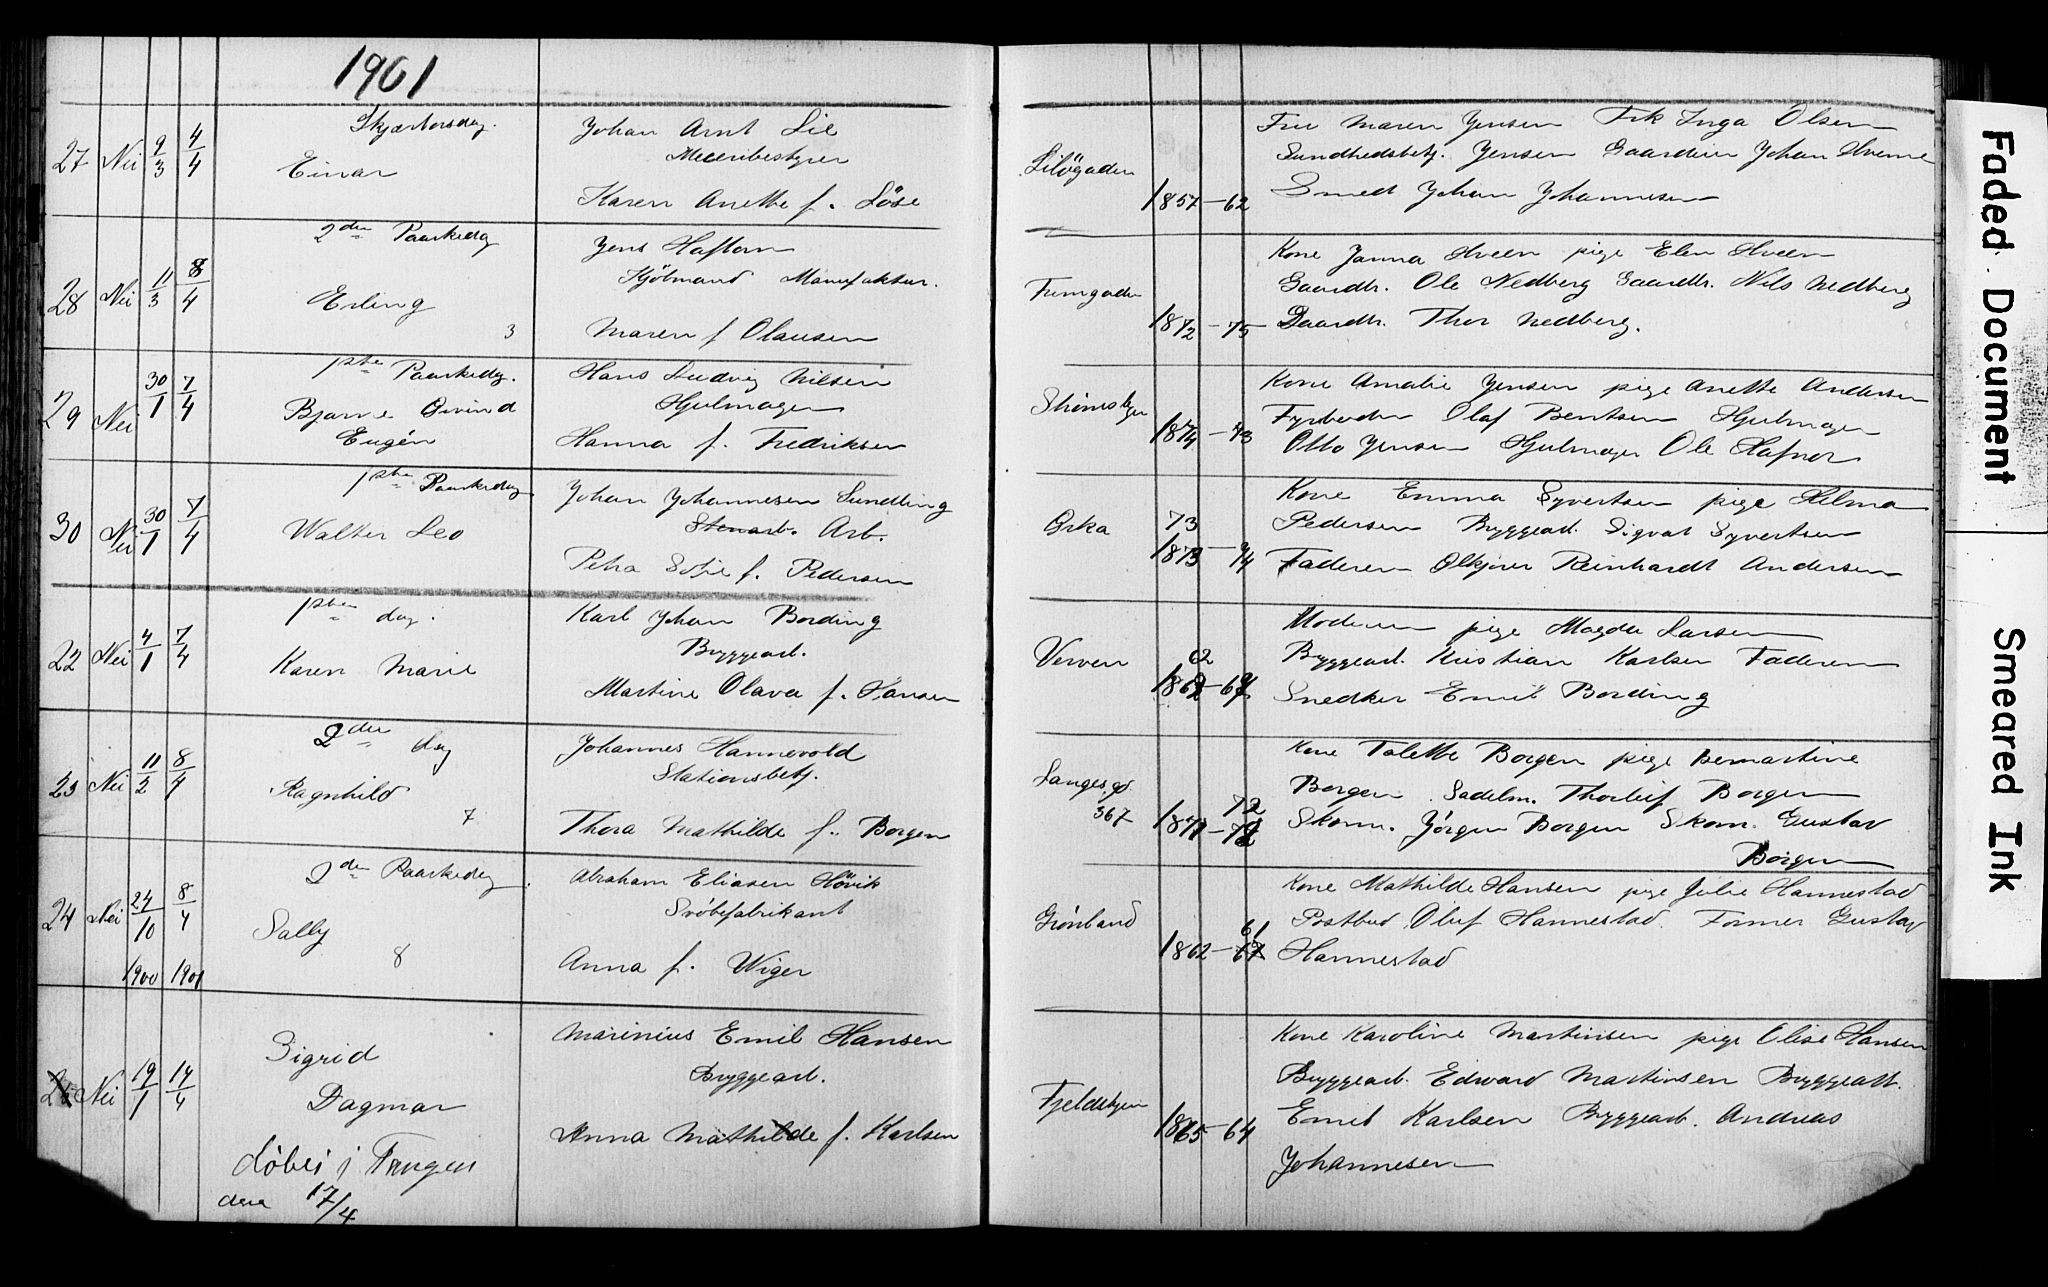 1901
27 Nei 9/3 4/4 Skjærtorsdag.
Einar
Johan Arnt Lie
Meieribestyrer
Karen Anette f. Löse
28 Nei 11/3 8/4 2den Paaskedag
Erling
3
Jens Haftorn
Kjöbmand Manufaktur.
Maren f Olausen
29 Nei 30/1 7/4 1ste Paaskedag.
Bjarne Öivind
Eugén
Hans Ludvig Nilsen
Hjulmager
Hanna f. Fredriksen
30 Nei 30/1 7/4 1ste Paaskedag
Walter Leo
Johan Johannesen Sundling
Stenarb. Arb.
Petra Sofie f. Pedersen
22 Nei 4/1 7/4 1ste dag.
Karen Marie
Karl Johan Bording
Byggearb.
Martine Olava f. Hansen
23 Nei 11/2 8/4 2den dag
Ragnhild
7
Johannes Hannevold
Stationsbetj.
Thora Mathilde f. Borgen
24 Nei 24/10 8/4 2den Paaskedag.
Sally
8
1900 1901
Abraham Eliasen Hövik
Svöbefabrikant
Anna f. Wiger
25 Nei 19/1 14/4
Sigrid
Dagmar
döbt i Tangen
den 17/4
Marinius Emil Hansen
Byggearb.
Anna Mathilde f. Karlsen
Lilögaden
1857-62
Fru Maren Jensen Frk Inga Olsen
Sundhedsbetj. Jensen Gaardeier Johan
Smed Johan Johannesen
Fremgaden
1872-75
Kone Janna Hveen pige Elen Hveen
Gaardbr. Ole Nedberg Gaardbr. Nils Nedberg
Gaardbr. Thor Nedberg.
1874-73
Kone Amalie Jensen pige Anette Andersen
Fyrböder Olaf Bentsen Hjulmager
Otto Jensen Hjulmager Ole Hafnor
Grka
73
1873-74
Kone Emma Syvertsen pige Hilma
Pedersen Byggearb. Sigvat Syvertsen
Faderen Olkjörer Reinhardt Andersen
Verven
62
1862-67
Moderen pige Magda Larsen
Byggearb. Kristian Karlsen Faderen
Snedker Emil Bording
Langesgd.
367
72
1871-72
Kone Talette Borgen pige Bernartine
Borgen Sadelm. Thorleif Borgen
Skom. Jörgen Borgen Skom. Gustav
Borgen
Grönland
61
1862-62
Kone Mathilde Hansen pige Julie Hannestad
Postbud Oluf Hannestad. Former Gustav
Hannestad
Fjeldskjen
1865-64
Kone Karoline Martinsen pige Olise Hansen
Byggearb. Edvard Martinsen Byggearb.
Emil Karlsen Byggearb. Andreas
Johannesen
Faded Document
Smeared Ink